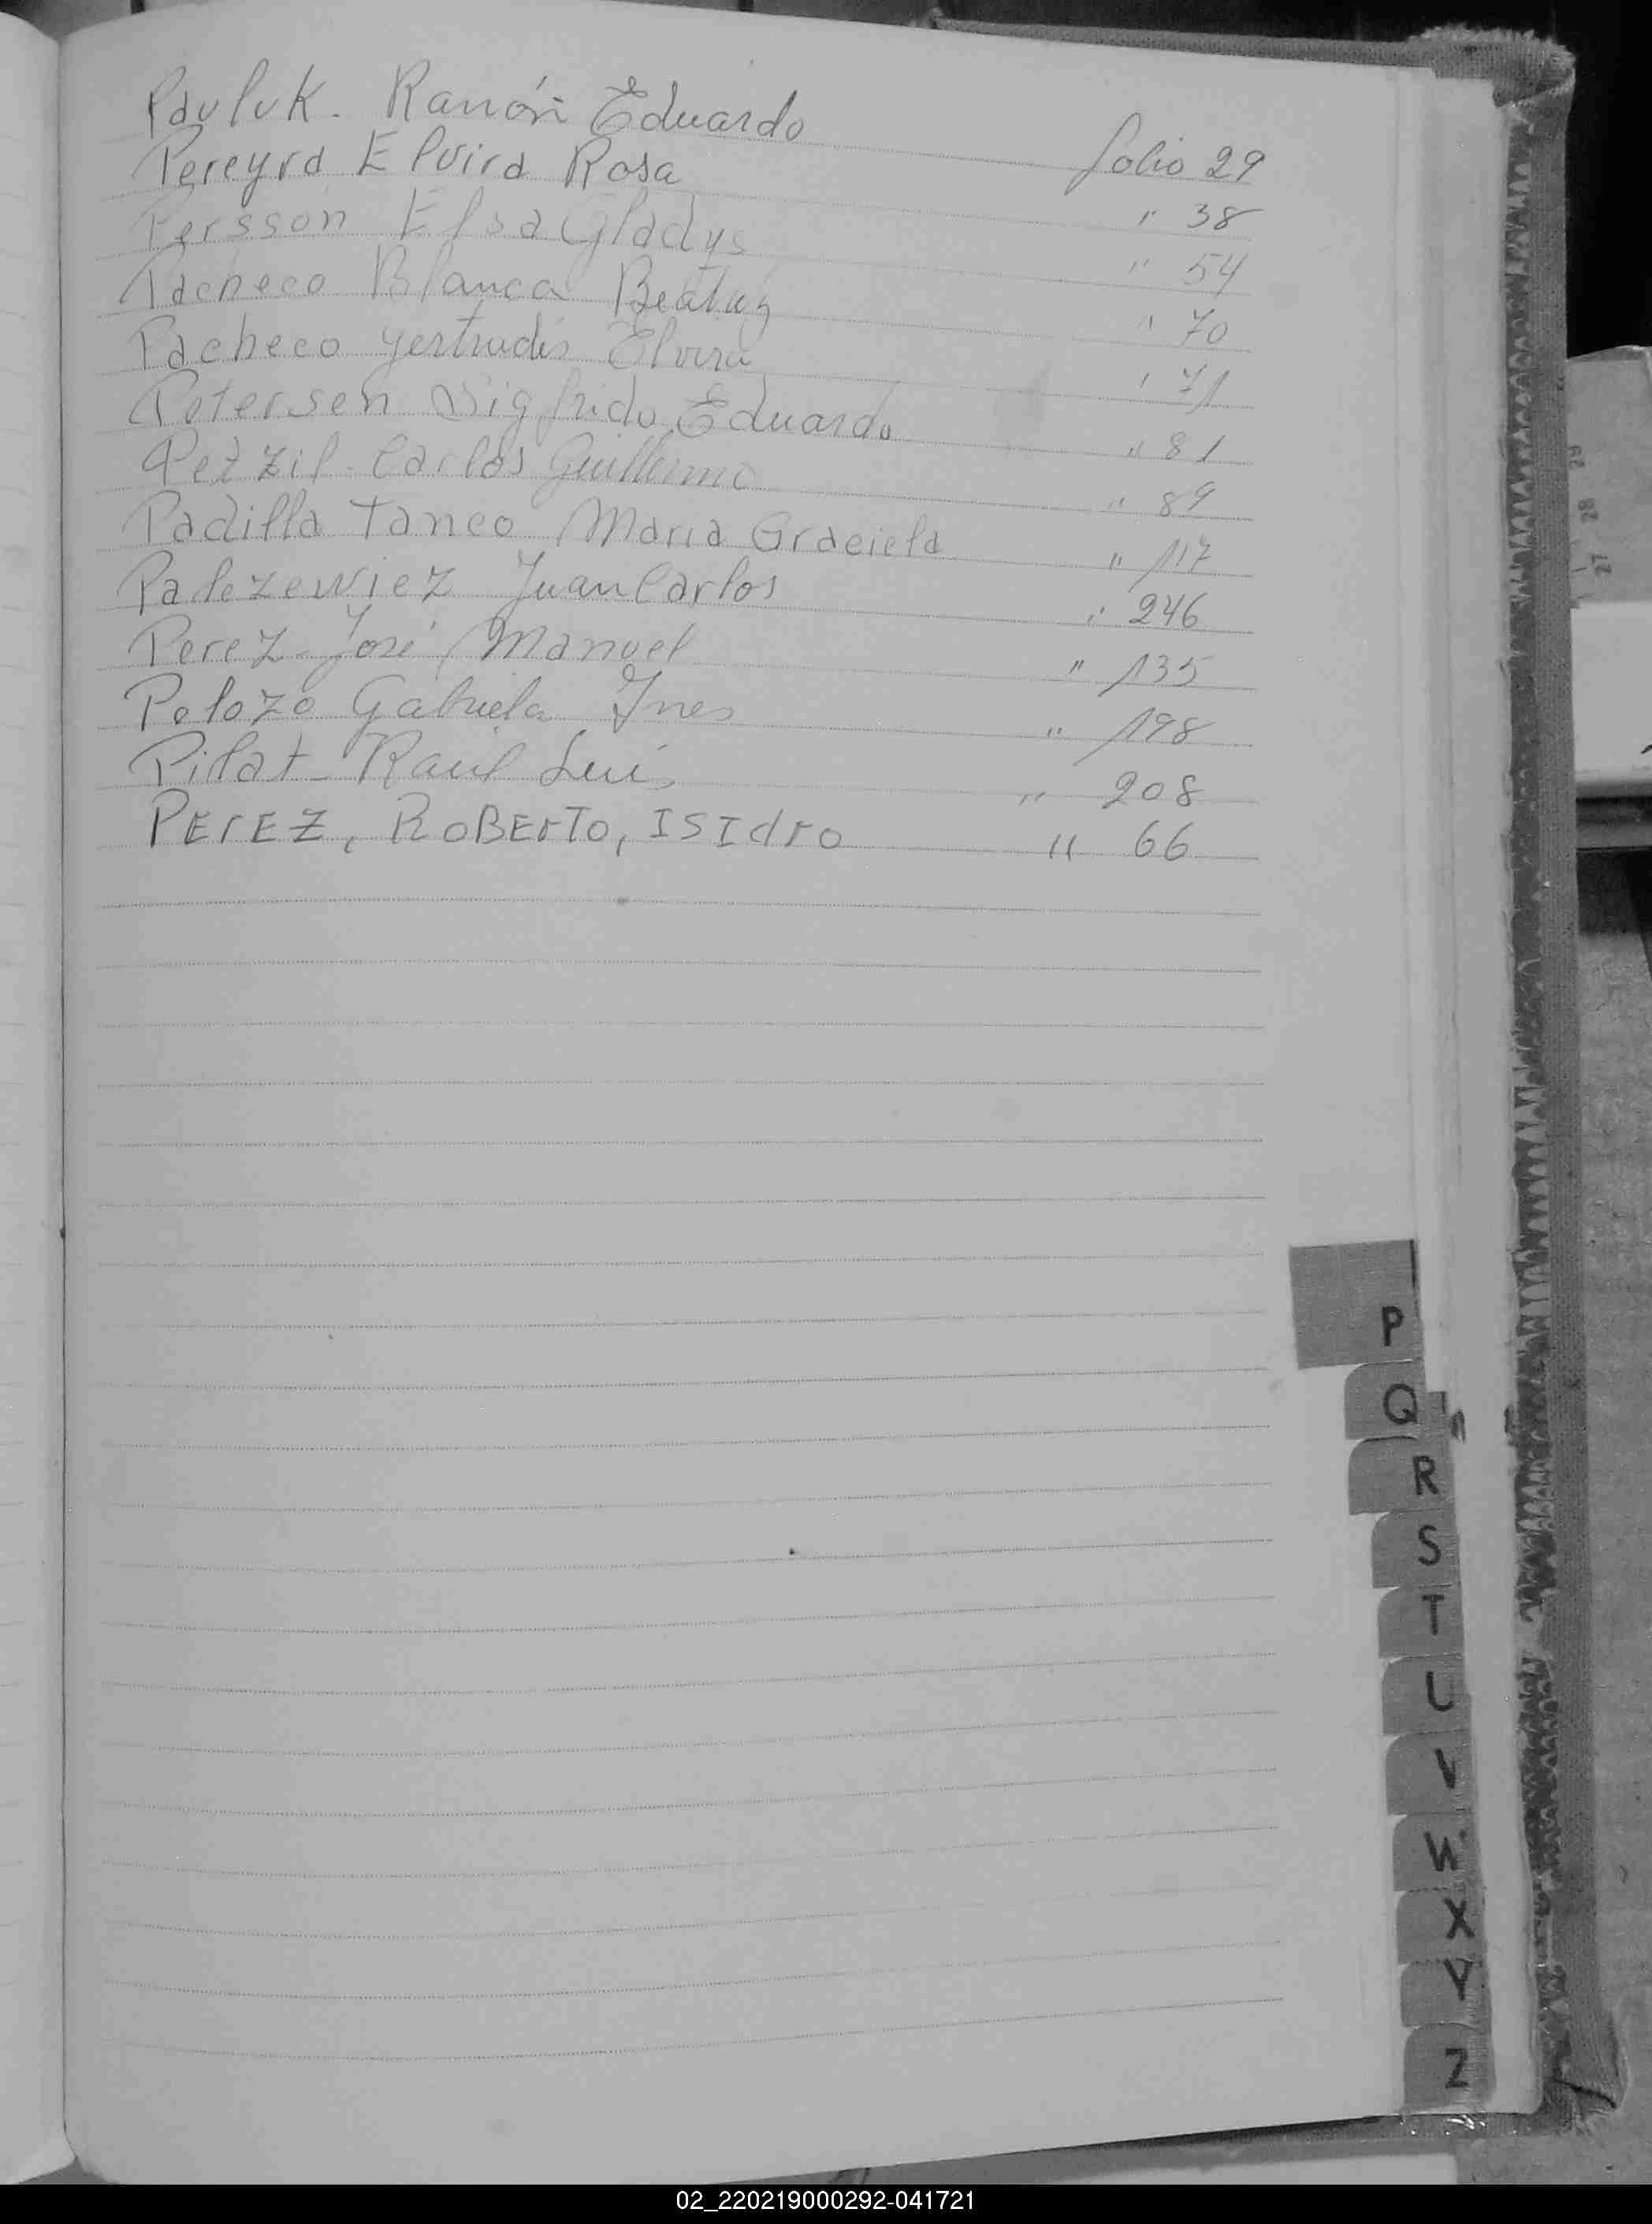 Pauluk. Ramón Eduardo folio 29
Pereyra Elvira Rosa " 38
Persson Elsa Gladys " 54
Pacheco Blanca Beatriz " 70
Pacheco Gertrudis Elvira " 71
Petersen Sigfrido Eduardo " 81
Petzil - Carlos Guillermo " 89
Padilla Tanco Maria Graciela " 117
Palezewiez Juan Carlos " 246
Perez - José Manuel " 135
Pelozo Gabriela Ines " 198
Pilat - Raúl Luis " 208
PErEZ, RoBErTo, ISIdro " 66
P
Q
R
S
T
U
V
W
X
Y
Z
27 28 29
02_220219000292-041721